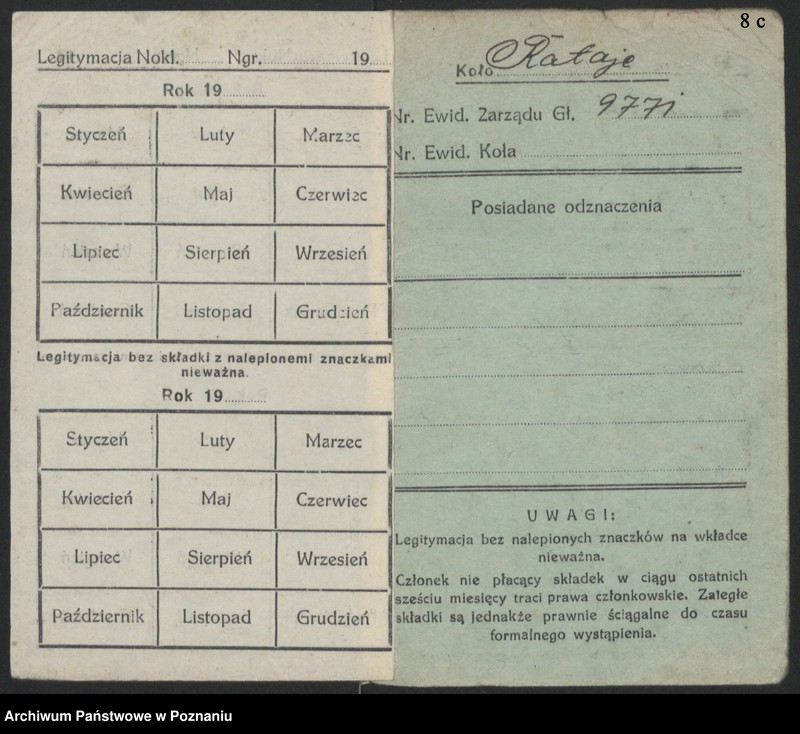 8 c
Legitymacja Nokl. Ngr. 19
Rok 19
Styczeń Luty Marzec
Kwiecień Maj Czerwiec
Lipiec Sierpień Wrzesień
Październik Listopad Grudzień
Legitymacja bez składki z nalepionemi znaczkami
nieważna.
Rok 19
Styczeń Luty Marzec
Kwiecień Maj Czerwiec
Lipiec Sierpień Wrzesień
Październik Listopad Grudzień
Koło Rataje
Nr. Ewid. Zarządu Gł. 9771
Nr. Ewid. Koła
Posiadane odznaczenia
UWAGI:
Legitymacja bez nalepionych znaczków na wkładce
nieważna.
Członek nie płacący składek w ciągu ostatnich
sześciu miesięcy traci prawa członkowskie. Zaległe
składki są jednakże prawnie ściągalne do czasu
formalnego wystąpienia.
Archiwum Państwowe w Poznaniu